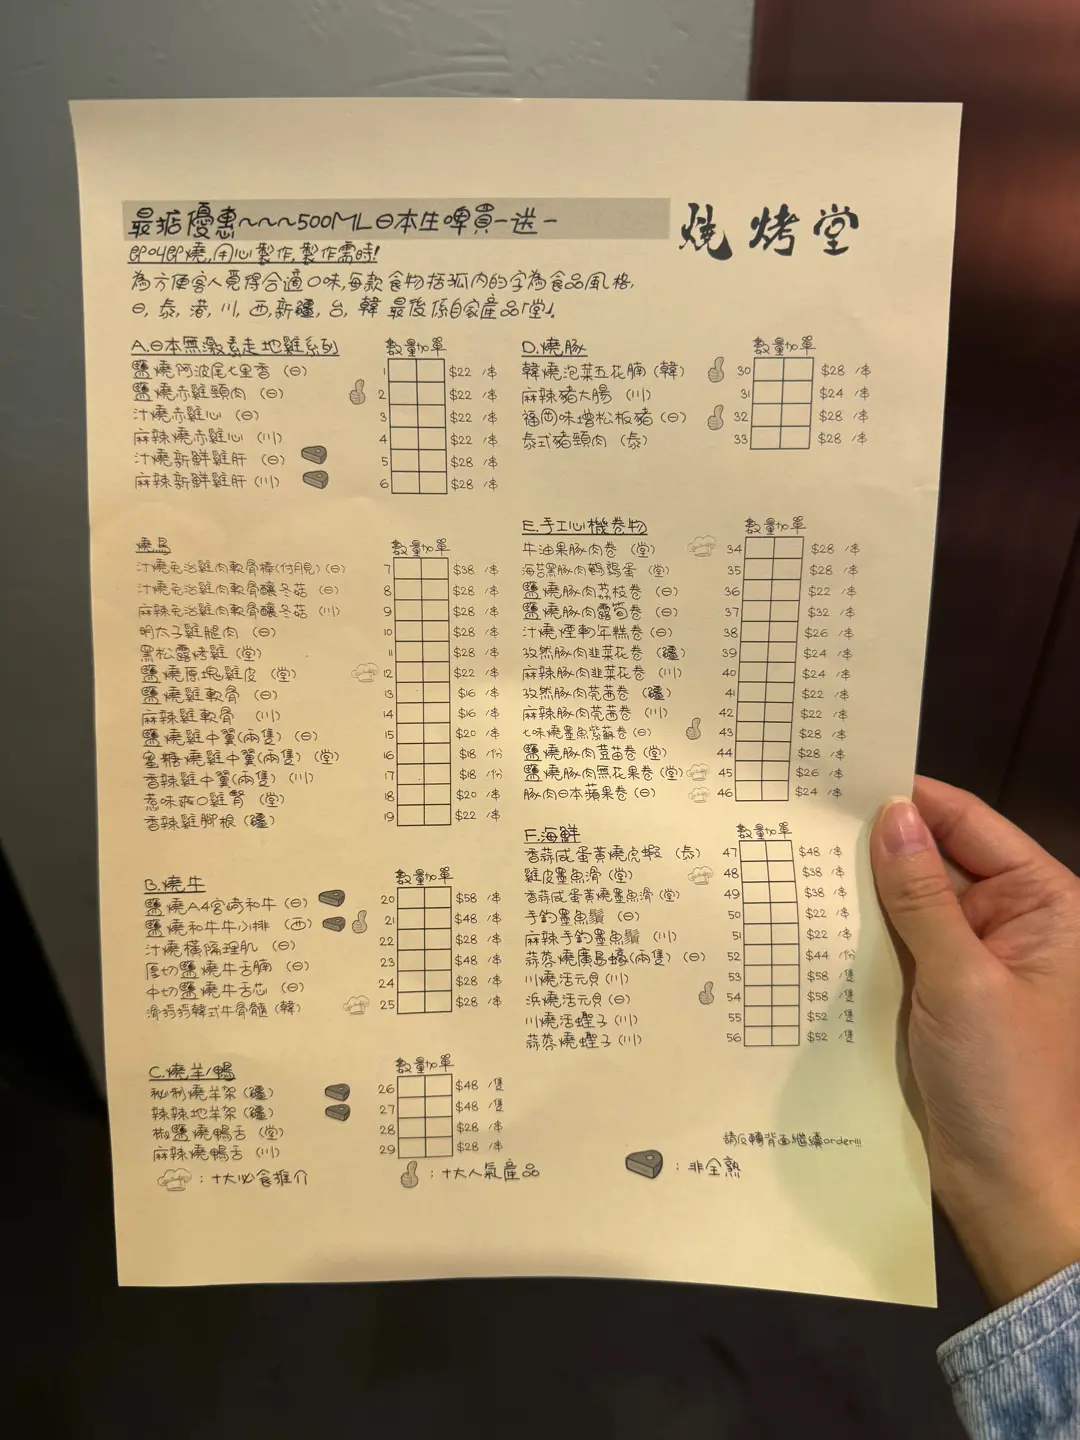 最掂優惠~~~500ML日本生啤買一送一
燒烤堂
即叫即燒,用心製作,製作需時!
為方便客人覓得合適口味,每款食物括弧內的字為食品風格,
日,泰,港,川,西,新疆,台,韓 最後係自家產品「堂」.
A.日本無激素走地雞系列 數量加單
鹽燒阿波尾七里香 (日) 1 $22 /本
鹽燒赤雞頸肉 (日) 2 $22 /本
汁燒赤雞心 (日) 3 $22 /本
麻辣燒赤雞心 (川) 4 $22 /本
汁燒新鮮雞肝 (日) 5 $28 /本
麻辣新鮮雞肝 (川) 6 $28 /本
燒鳥 數量加單
汁燒免治雞肉軟骨棒(付月見) (日) 7 $38 /本
汁燒免治雞肉軟骨釀冬菇 (日) 8 $28 /本
麻辣免治雞肉軟骨釀冬菇 (川) 9 $28 /本
明太子雞腿肉 (日) 10 $28 /本
黑松露烤雞 (堂) 11 $28 /本
鹽燒原塊雞皮 (堂) 12 $22 /本
鹽燒雞軟骨 (日) 13 $16 /本
麻辣雞軟骨 (川) 14 $16 /本
鹽燒雞中翼(兩隻) (日) 15 $20 /本
蜜糖燒雞中翼(兩隻) (堂) 16 $18 /份
香辣雞中翼(兩隻) (川) 17 $18 /份
惹味爽口雞腎 (堂) 18 $20 /本
香辣雞腳根 (疆) 19 $22 /本
B.燒牛 數量加單
鹽燒A4宮崎和牛 (日) 20 $58 /本
鹽燒和牛牛小排 (西) 21 $48 /本
汁燒橫隔理肌 (日) 22 $28 /本
厚切鹽燒牛舌腩 (日) 23 $48 /本
中切鹽燒牛舌芯 (日) 24 $28 /本
滑捋捋韓式牛骨髓 (韓) 25 $28 /本
C.燒羊/鴨 數量加單
秘制燒羊架 (疆) 26 $48 /隻
辣辣地羊架 (疆) 27 $48 /隻
椒鹽燒鴨舌 (堂) 28 $28 /本
麻辣燒鴨舌 (川) 29 $28 /本
D.燒豚 數量加單
韓燒泡菜五花腩 (韓) 30 $28 /本
麻辣豬大腸 (川) 31 $24 /本
福岡味增松板豬 (日) 32 $28 /本
泰式豬頸肉 (泰) 33 $28 /本
E.手工心機卷物 數量加單
牛油果豚肉卷 (堂) 34 $28 /本
海苔黑豚肉鵪鶉蛋 (堂) 35 $28 /本
鹽燒豚肉荔枝卷 (日) 36 $22 /本
鹽燒豚肉露筍卷 (日) 37 $32 /本
汁燒煙韌年糕卷 (日) 38 $26 /本
孜然豚肉韭菜花卷 (疆) 39 $24 /本
麻辣豚肉韭菜花卷 (川) 40 $24 /本
孜然豚肉芫茜卷 (疆) 41 $22 /本
麻辣豚肉芫茜卷 (川) 42 $22 /本
七味燒墨魚紫蘇卷 (日) 43 $28 /本
鹽燒豚肉荳苗卷 (堂) 44 $28 /本
鹽燒豚肉無花果卷 (堂) 45 $26 /本
豚肉日本蘋果卷 (日) 46 $24 /本
F.海鮮 數量加單
香蒜咸蛋黃燒虎蝦 (泰) 47 $48 /本
雞皮墨魚滑 (堂) 48 $38 /本
香蒜咸蛋黃燒墨魚滑 (堂) 49 $38 /本
手釣墨魚鬚 (日) 50 $22 /本
麻辣手釣墨魚鬚 (川) 51 $22 /本
蒜蓉燒廣島蠔(兩隻) (日) 52 $44 /份
川燒活元貝 (川) 53 $58 /隻
浜燒活元貝 (日) 54 $58 /隻
川燒活蟶子 (川) 55 $52 /隻
蒜蓉燒蟶子 (川) 56 $52 /隻
請反轉背面繼續order!!!
:十大必食推介
:十大人氣產品
:非全熟